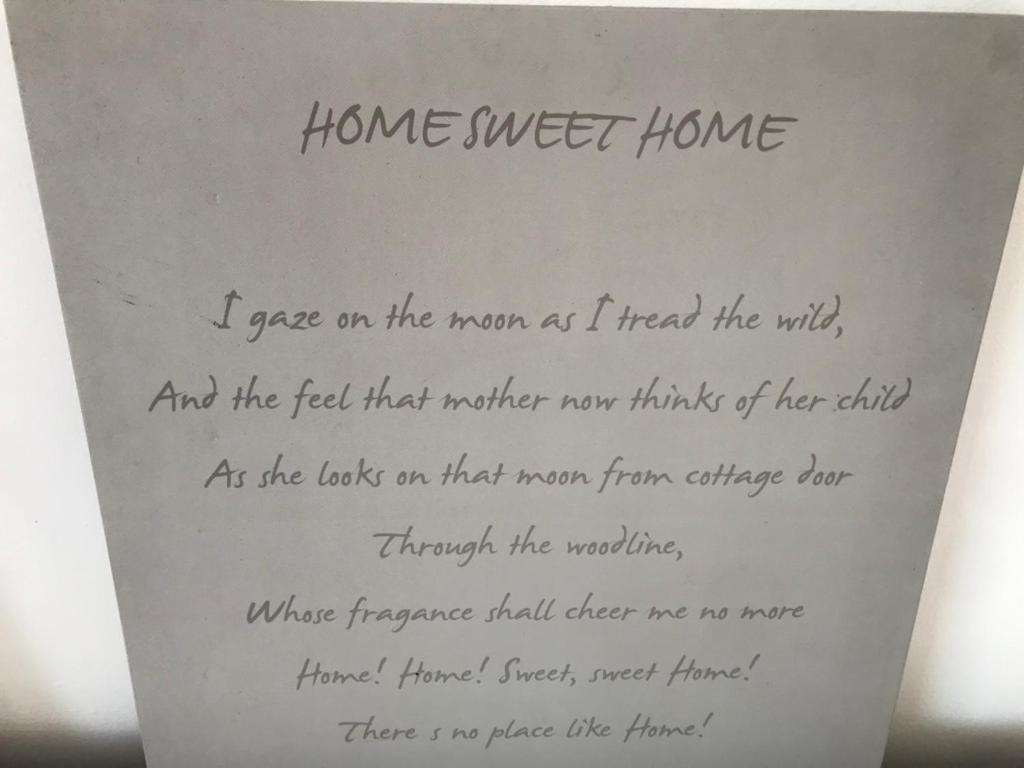 HOME SWEET HOME
I gaze on the moon as I tread the wild,
And the feel that mother now thinks of her child
As she looks on that moon from cottage door
Through the woodline,
Whose fragance shall cheer me no more
Home! Home! Sweet, sweet Home!
There s no place like Home!